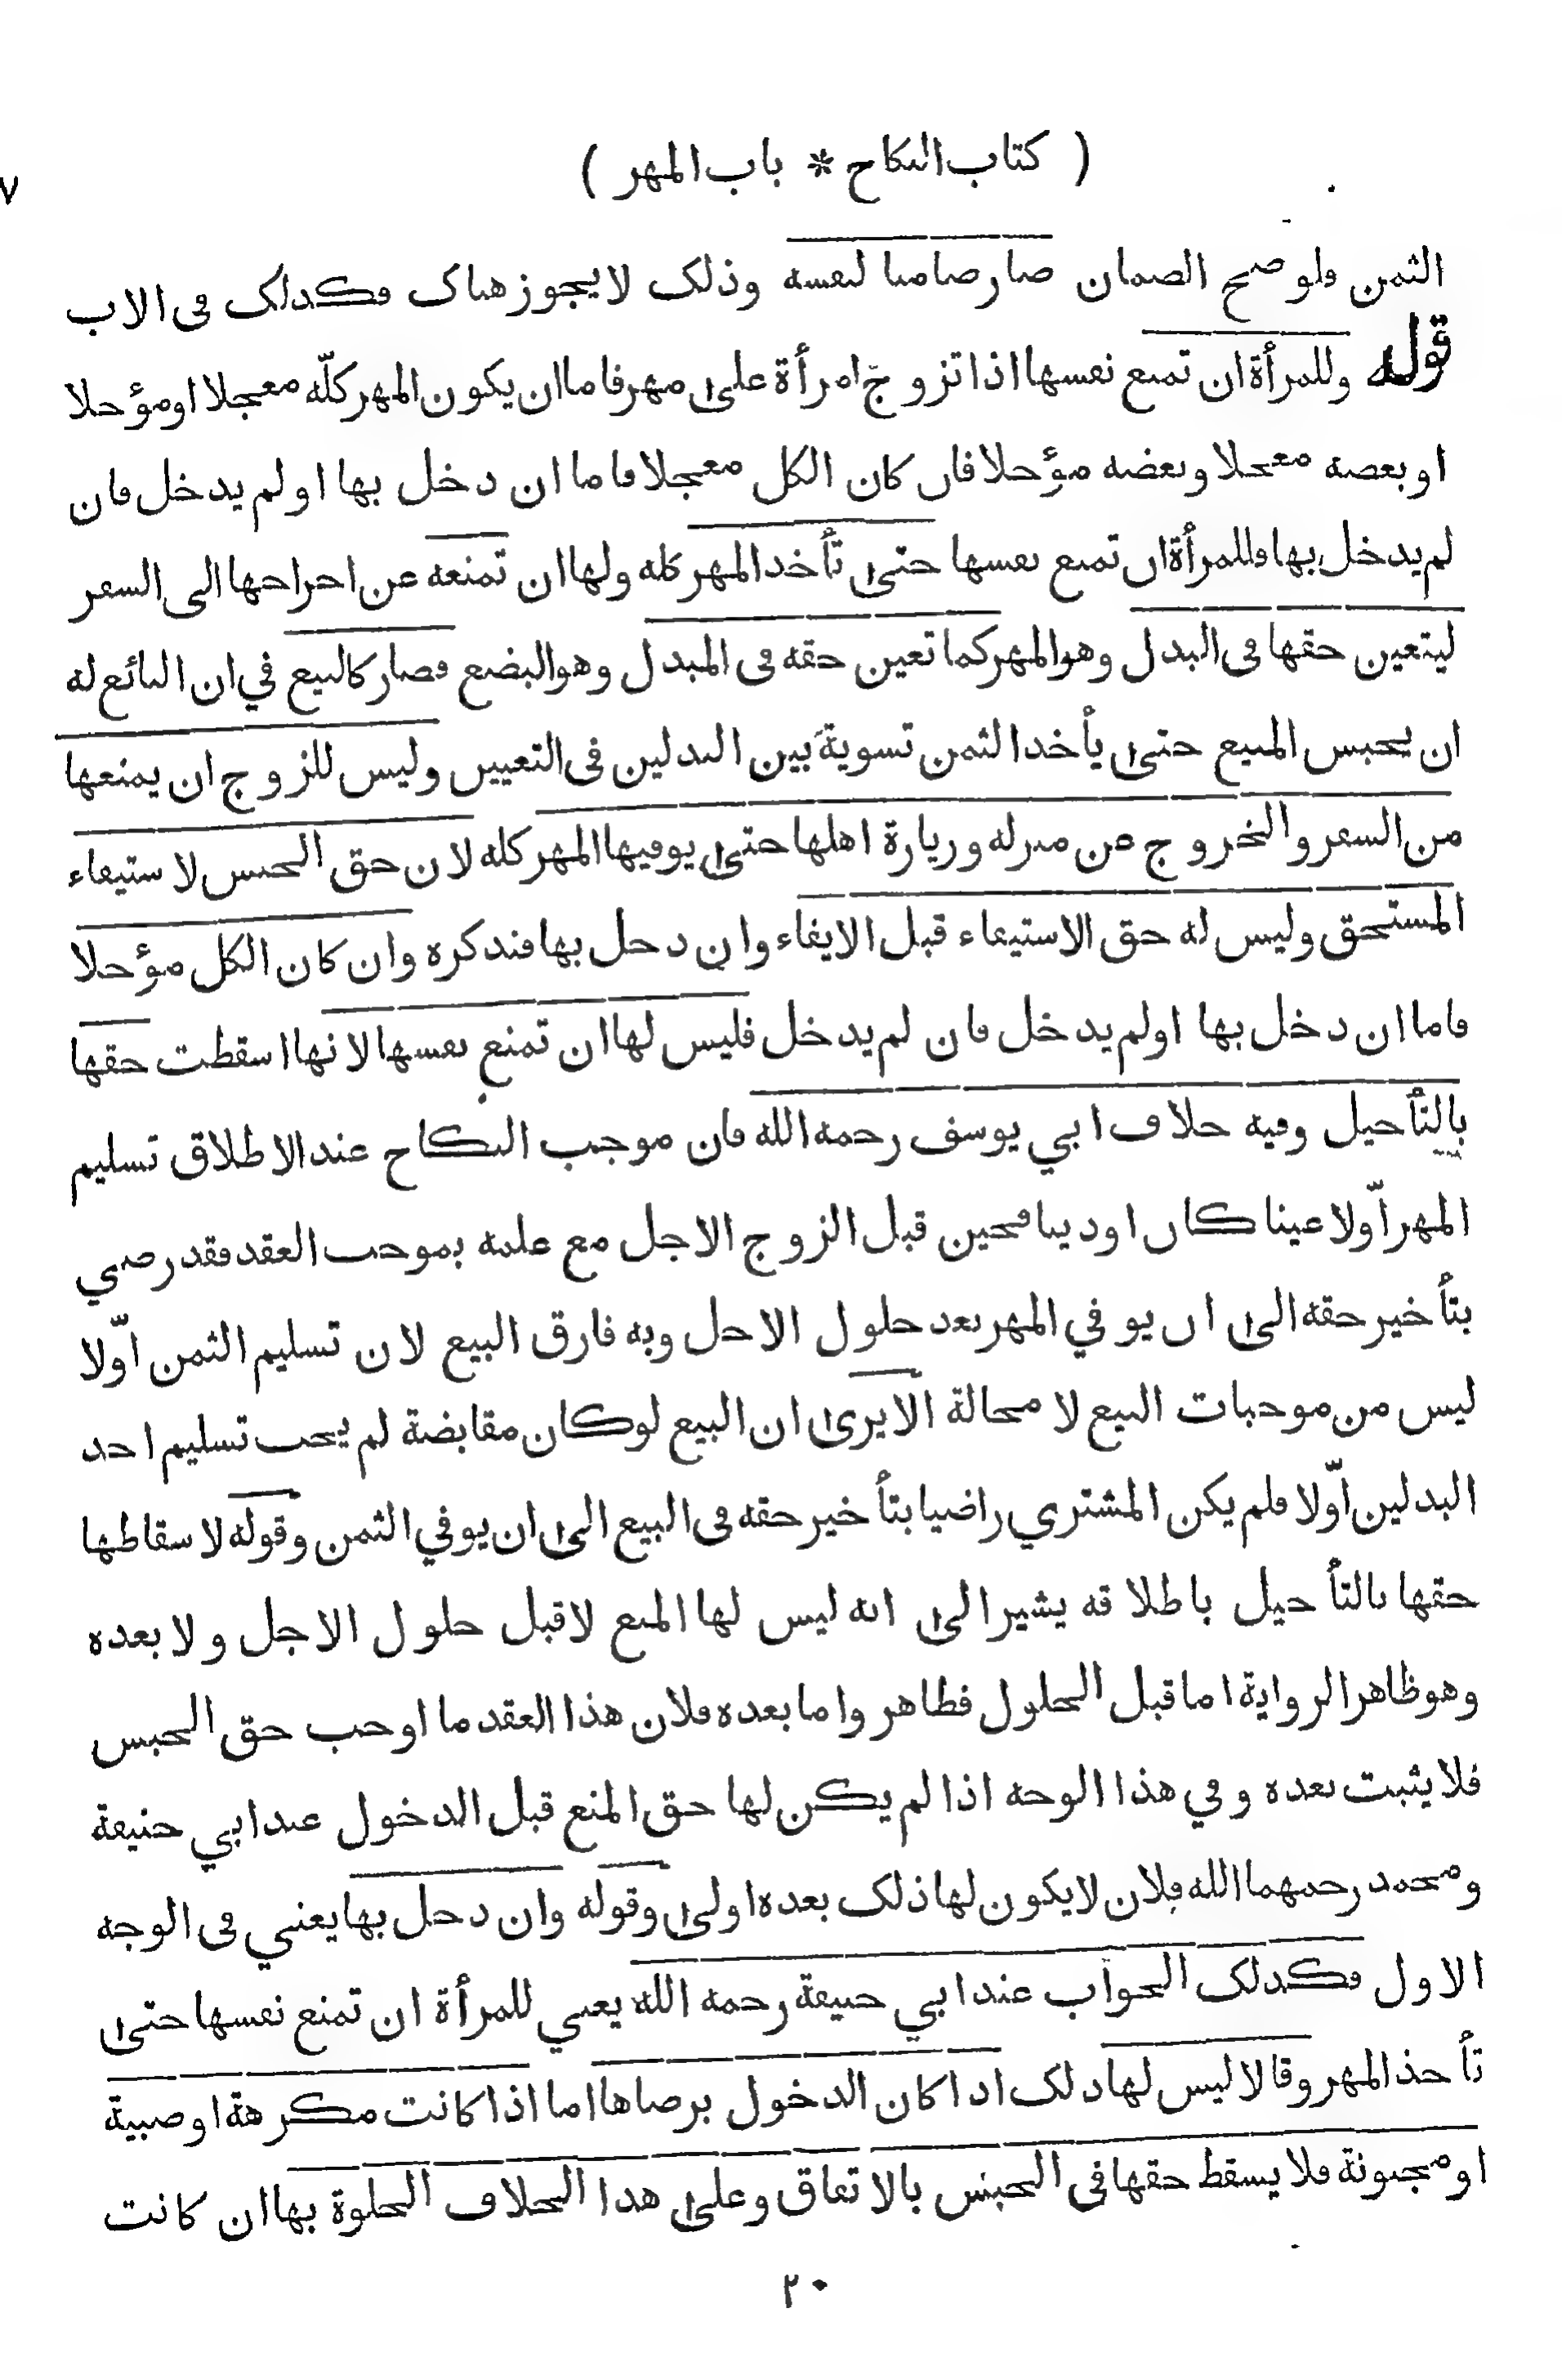 ( كتاب النكاح * باب المهر )
٧
الثمن فلو صح الضمان صار ضامنا لنفسه وذلك لا يجوز هناك فكذلك فى الاب
قوله وللمرأة ان تمنع نفسها اذا تزوج امرأة على مهر فاما ان يكون المهر كلّه معجلا او مؤجلا
او بعضه معجلا وبعضه مؤجلا فان كان الكل معجلا فاما ان دخل بها او لم يدخل فان
لم يدخل بها فللمرأة ان تمنع نفسها حتى تأخذ المهر كله ولها ان تمنعه عن اخراجها الى السفر
ليتعين حقها فى البدل وهو المهر كما تعين حقه فى المبدل وهو البضع فصار كالبيع في ان البائع له
ان يحبس المبيع حتى يأخذ الثمن تسوية بين البدلين فى التعيين وليس للزوج ان يمنعها
من السفر والخروج من منزله وزيارة اهلها حتى يوفيها المهر كله لان حق الحبس لاستيفاء
المستحق وليس له حق الاستيفاء قبل الايفاء وان دخل بها فنذكره وان كان الكل مؤجلا
فاما ان دخل بها او لم يدخل فان لم يدخل فليس لها ان تمنع نفسها لانها اسقطت حقها
بالتأجيل وفيه خلاف ابي يوسف رحمه الله فان موجب النكاح عند الاطلاق تسليم
المهر اوّلا عينا كان او دينا فحين قبل الزوج الاجل مع علمه بموجب العقد فقد رضي
بتأخير حقه الى ان يوفي المهر بعد حلول الاجل وبه فارق البيع لان تسليم الثمن اوّلا
ليس من موجبات البيع لا محالة الا يرى ان البيع لو كان مقابضة لم يجب تسليم احد
البدلين اوّلا فلم يكن المشتري راضيا بتأخير حقه فى البيع الى ان يوفي الثمن وقوله لاسقاطها
حقها بالتأجيل باطلاقه يشير الى انه ليس لها المنع لا قبل حلول الاجل ولا بعده
وهو ظاهر الرواية اما قبل الحلول فظاهر واما بعده فلان هذا العقد ما اوجب حق الحبس
فلا يثبت بعده وفي هذا الوجه اذا لم يكن لها حق المنع قبل الدخول عند ابي حنيفة
ومحمد رحمهما الله فلان لا يكون لها ذلك بعده اولى وقوله وان دخل بها يعني فى الوجه
الاول فكذلك الجواب عند ابي حنيفة رحمه الله يعني للمرأة ان تمنع نفسها حتى
تأخذ المهر وقالا ليس لها ذلك اذا كان الدخول برضاها اما اذا كانت مكرهة او صبية
او مجنونة فلا يسقط حقها فى الحبس بالاتفاق وعلى هذا الخلاف الخلوة بها ان كانت
٢٠